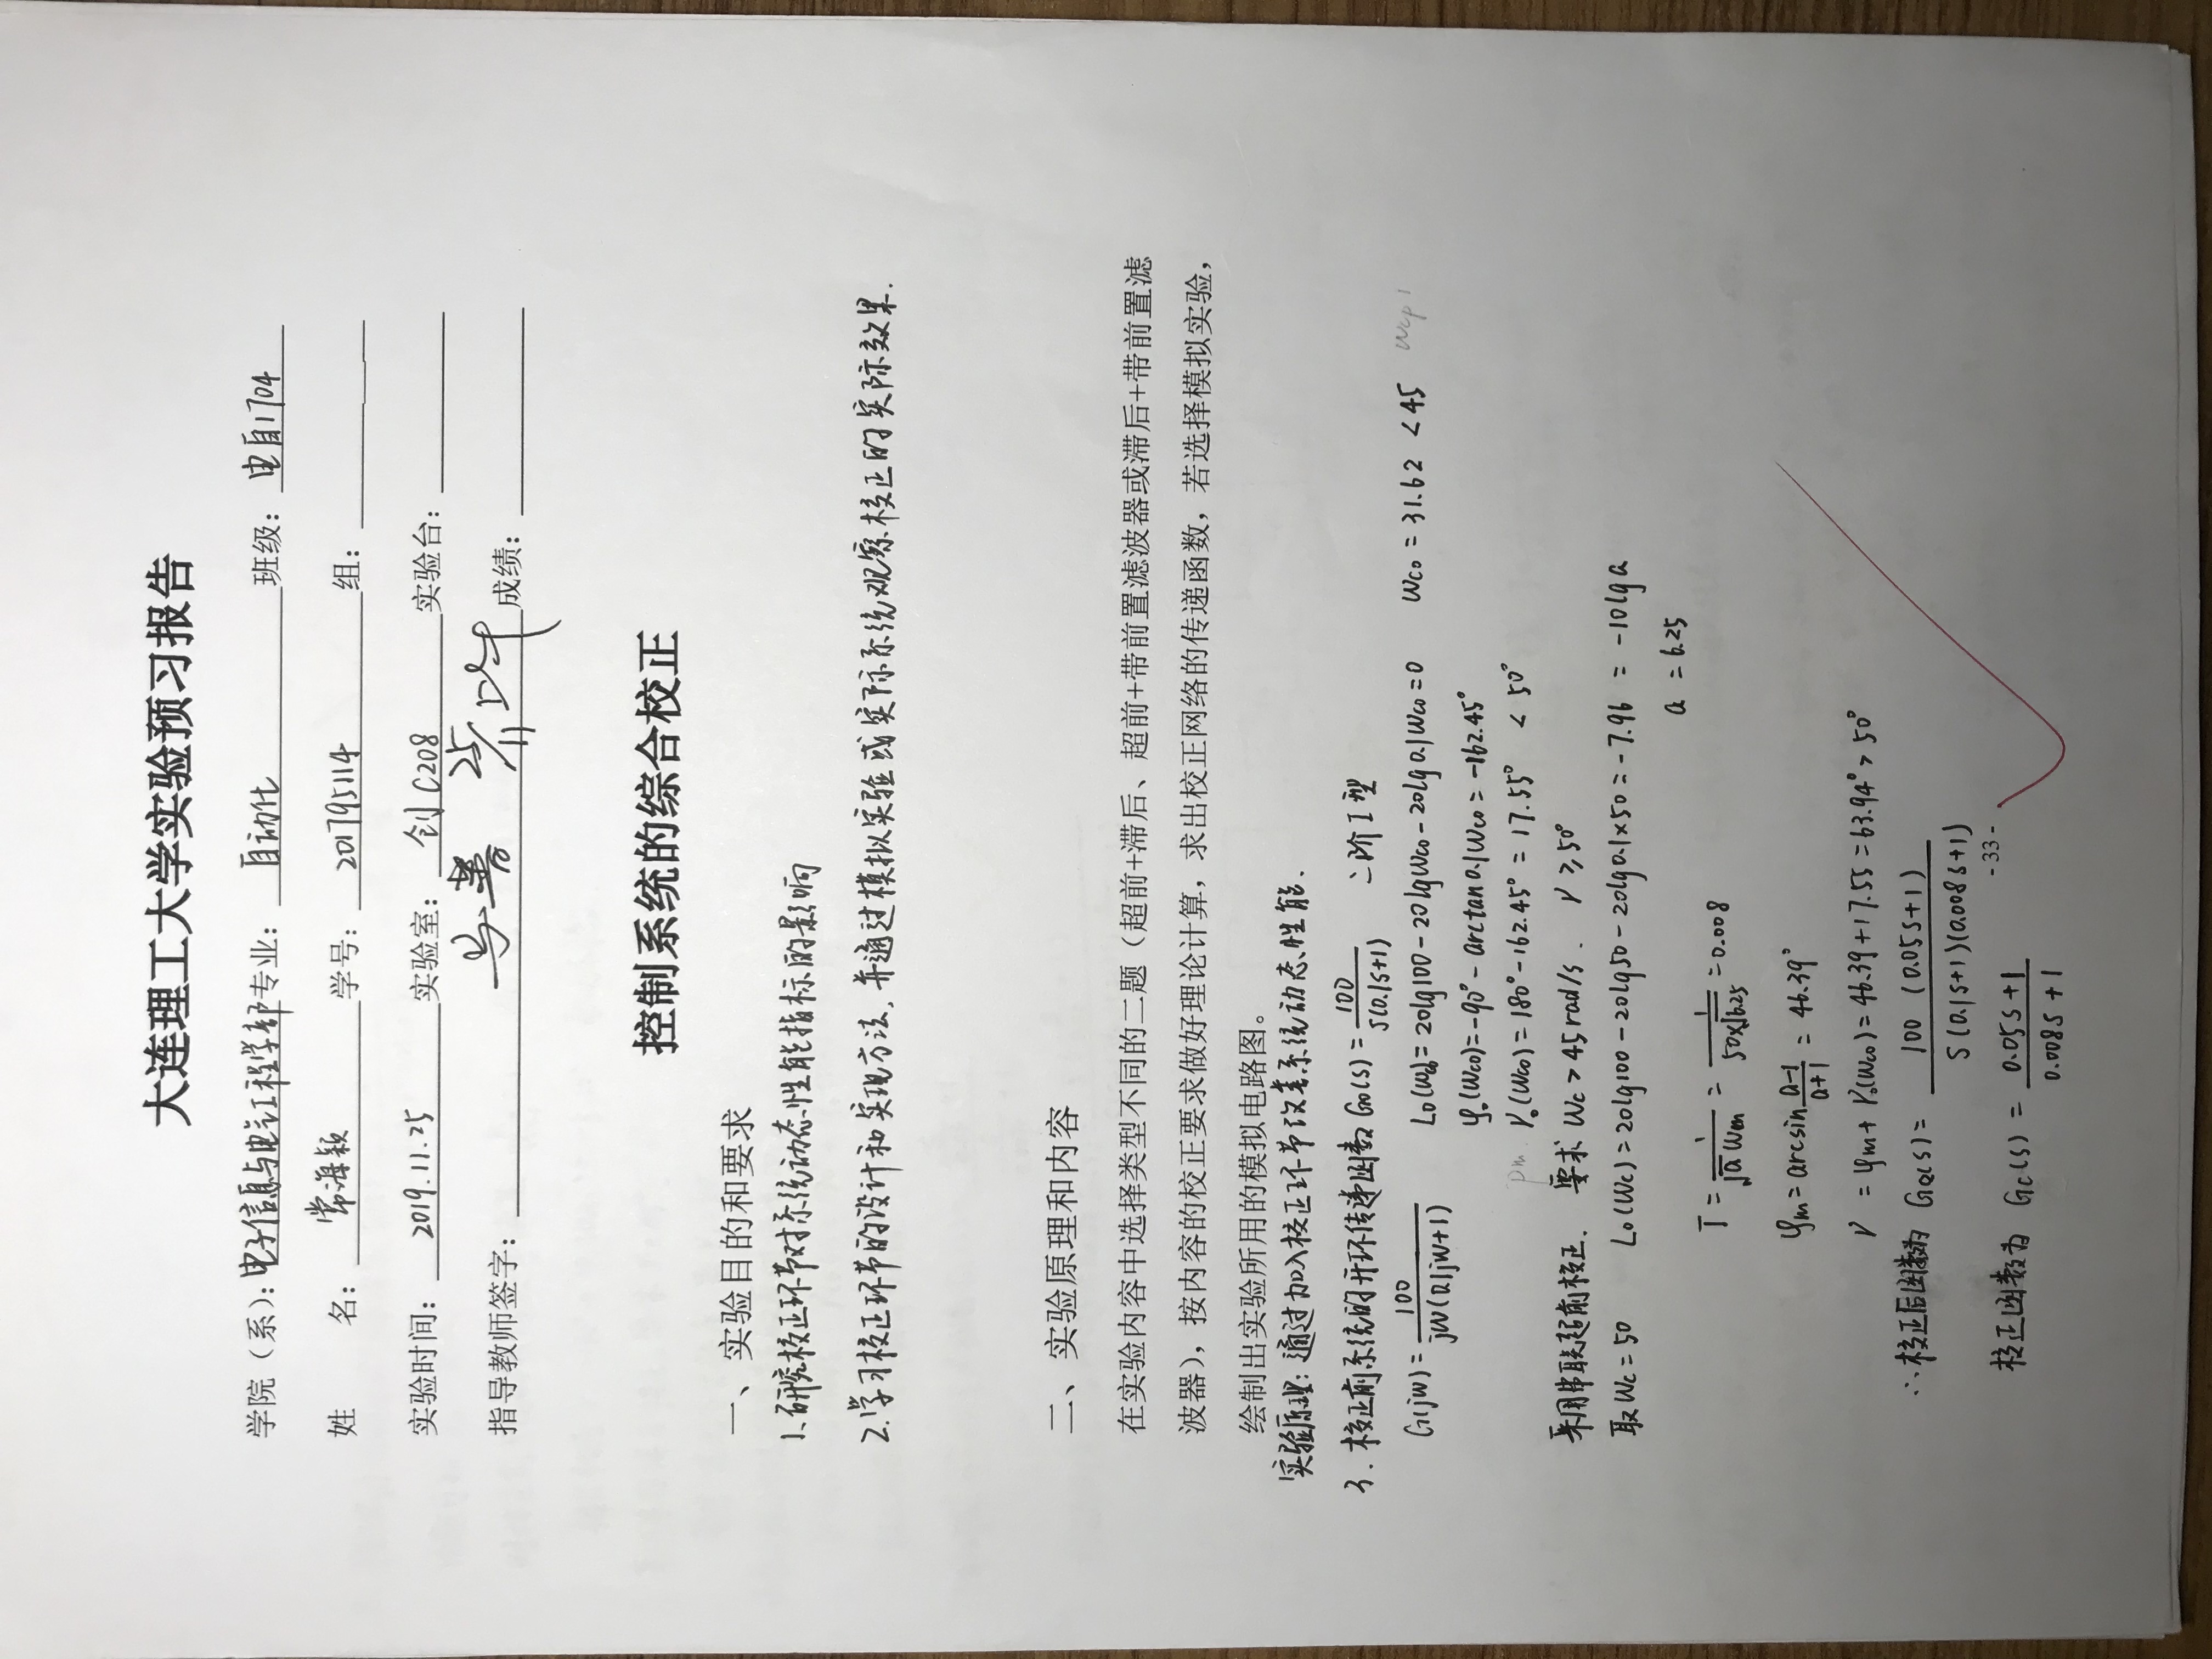 大连理工大学实验预习报告
学院（系）：电子信息与电气工程学部 专业： 自动化 班级： 电自1704
姓 名： 常海颖 学号： 201795114 组：
实验时间： 2019.11.25 实验室： 创C208 实验台：
指导教师签字： 25/11 成绩：
控制系统的综合校正
一、实验目的和要求
1.研究校正环节对系统动态性能指标的影响
2.学习校正环节的设计和实现方法，并通过模拟实验或实际系统观察校正的实际效果.
二、实验原理和内容
在实验内容中选择类型不同的二题（超前+滞后、超前+带前置滤波器或滞后+带前置滤
波器），按内容的校正要求做好理论计算，求出校正网络的传递函数，若选择模拟实验，
绘制出实验所用的模拟电路图。
实验原理：通过加入校正环节改善系统动态性能.
3. 校正前系统的开环传递函数 G₀(s) = 100/(s(0.1s+1)) 二阶I型
G(jw) = 100/(jw(0.1jw+1)) L₀(wc₀) = 20lg100 - 20lgwc₀ - 20lg0.1wc₀ = 0 wc₀ = 31.62 < 45 wcp1
φ₀(wc₀) = -90° - arctan0.1wc₀ = -162.45°
pm. γ₀(wc₀) = 180° - 162.45° = 17.55° < 50°
采用串联超前校正. 要求 wc > 45rad/s . γ ≥ 50°
取wc = 50 L₀(wc) = 20lg100 - 20lg50 - 20lg0.1×50 = -7.96 = -10lga
a = 6.25
T = 1/(√a wm) = 1/(50×√6.25) = 0.008
φm = arcsin (a-1)/(a+1) = 46.39°
γ = φm + γ₀(wc₀) = 46.39 + 17.55 = 63.94° > 50°
∴ 校正后函数为 G(s) = 100 (0.05s+1)/(s(0.1s+1)(0.008s+1))
- 33 -
校正函数为 Gc(s) = (0.05s+1)/(0.008s+1)